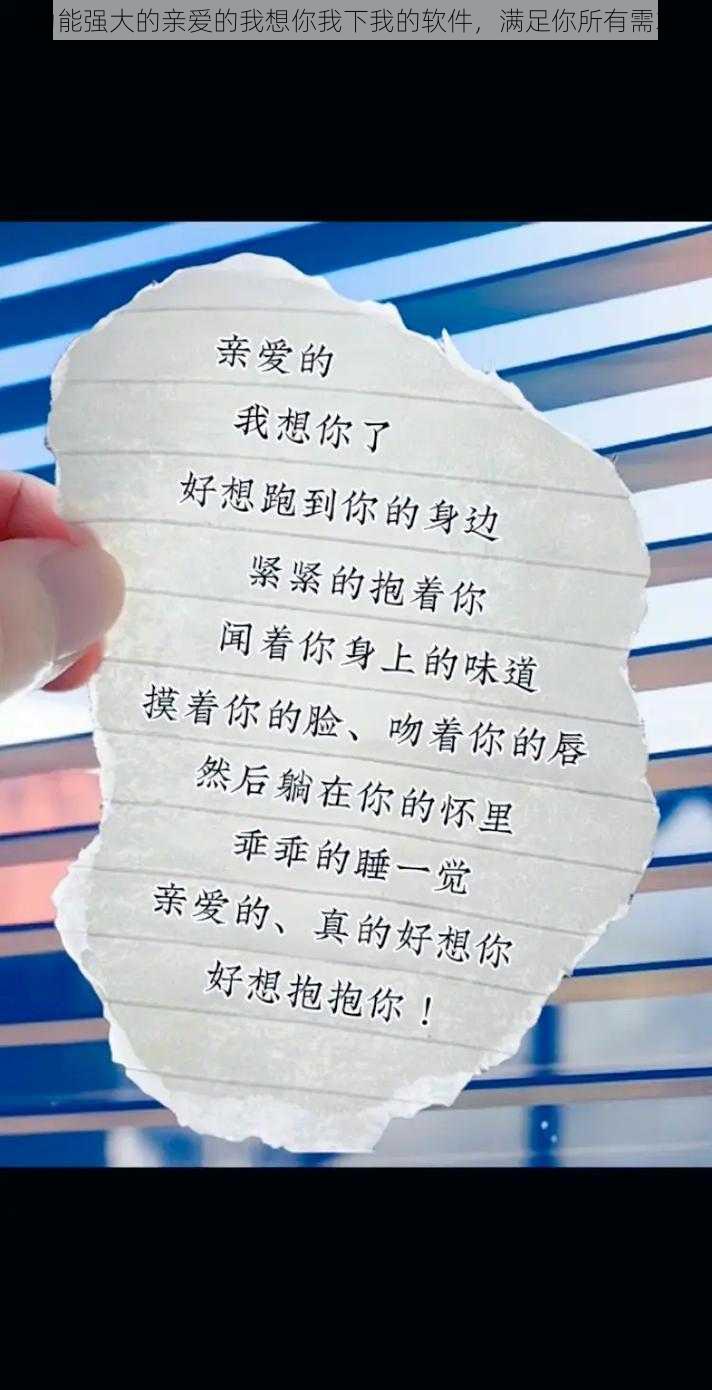 能强大的亲爱的我想你我下我的软件，满足你所有需
亲爱的
我想你了
好想跑到你的身边
紧紧的抱着你
闻着你身上的味道
摸着你的脸、吻着你的唇
然后躺在你的怀里
乖乖的睡一觉
亲爱的、真的好想你
好想抱抱你！